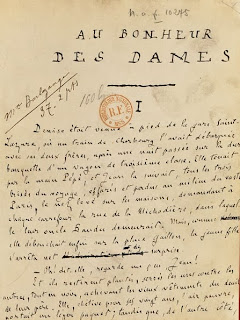 N. a. f. 10275
AU BONHEUR
DES DAMES
37. 2 pts
I
Denise était venue à pied de la gare Saint-
Lazare, où un train de Cherbourg l'avait débarquée
avec ses deux frères, après une nuit passée sur la dure
banquette d'un wagon de troisième classe. Elle tenait
par la main Pépé, et Jean la suivait, tous les trois
brisés du voyage, effarés et perdus au milieu du vaste
Paris, le nez levé sur les maisons, demandant à
chaque carrefour la rue de la Michodière, dans laquelle
leur oncle Baudu demeurait. Mais, comme
elle débouchait enfin sur la place Gaillon, la jeune fille
s'arrêta net de surprise.
— Oh! dit-elle, regarde un peu, Jean!
Et ils restèrent plantés, serrés les uns contre les
autres, tout en noir, achevant les vieux vêtements du deuil
de leur père. Elle, chétive pour ses vingt ans, l'air pauvre,
portait un léger paquet; tandis que, de l'autre côté,